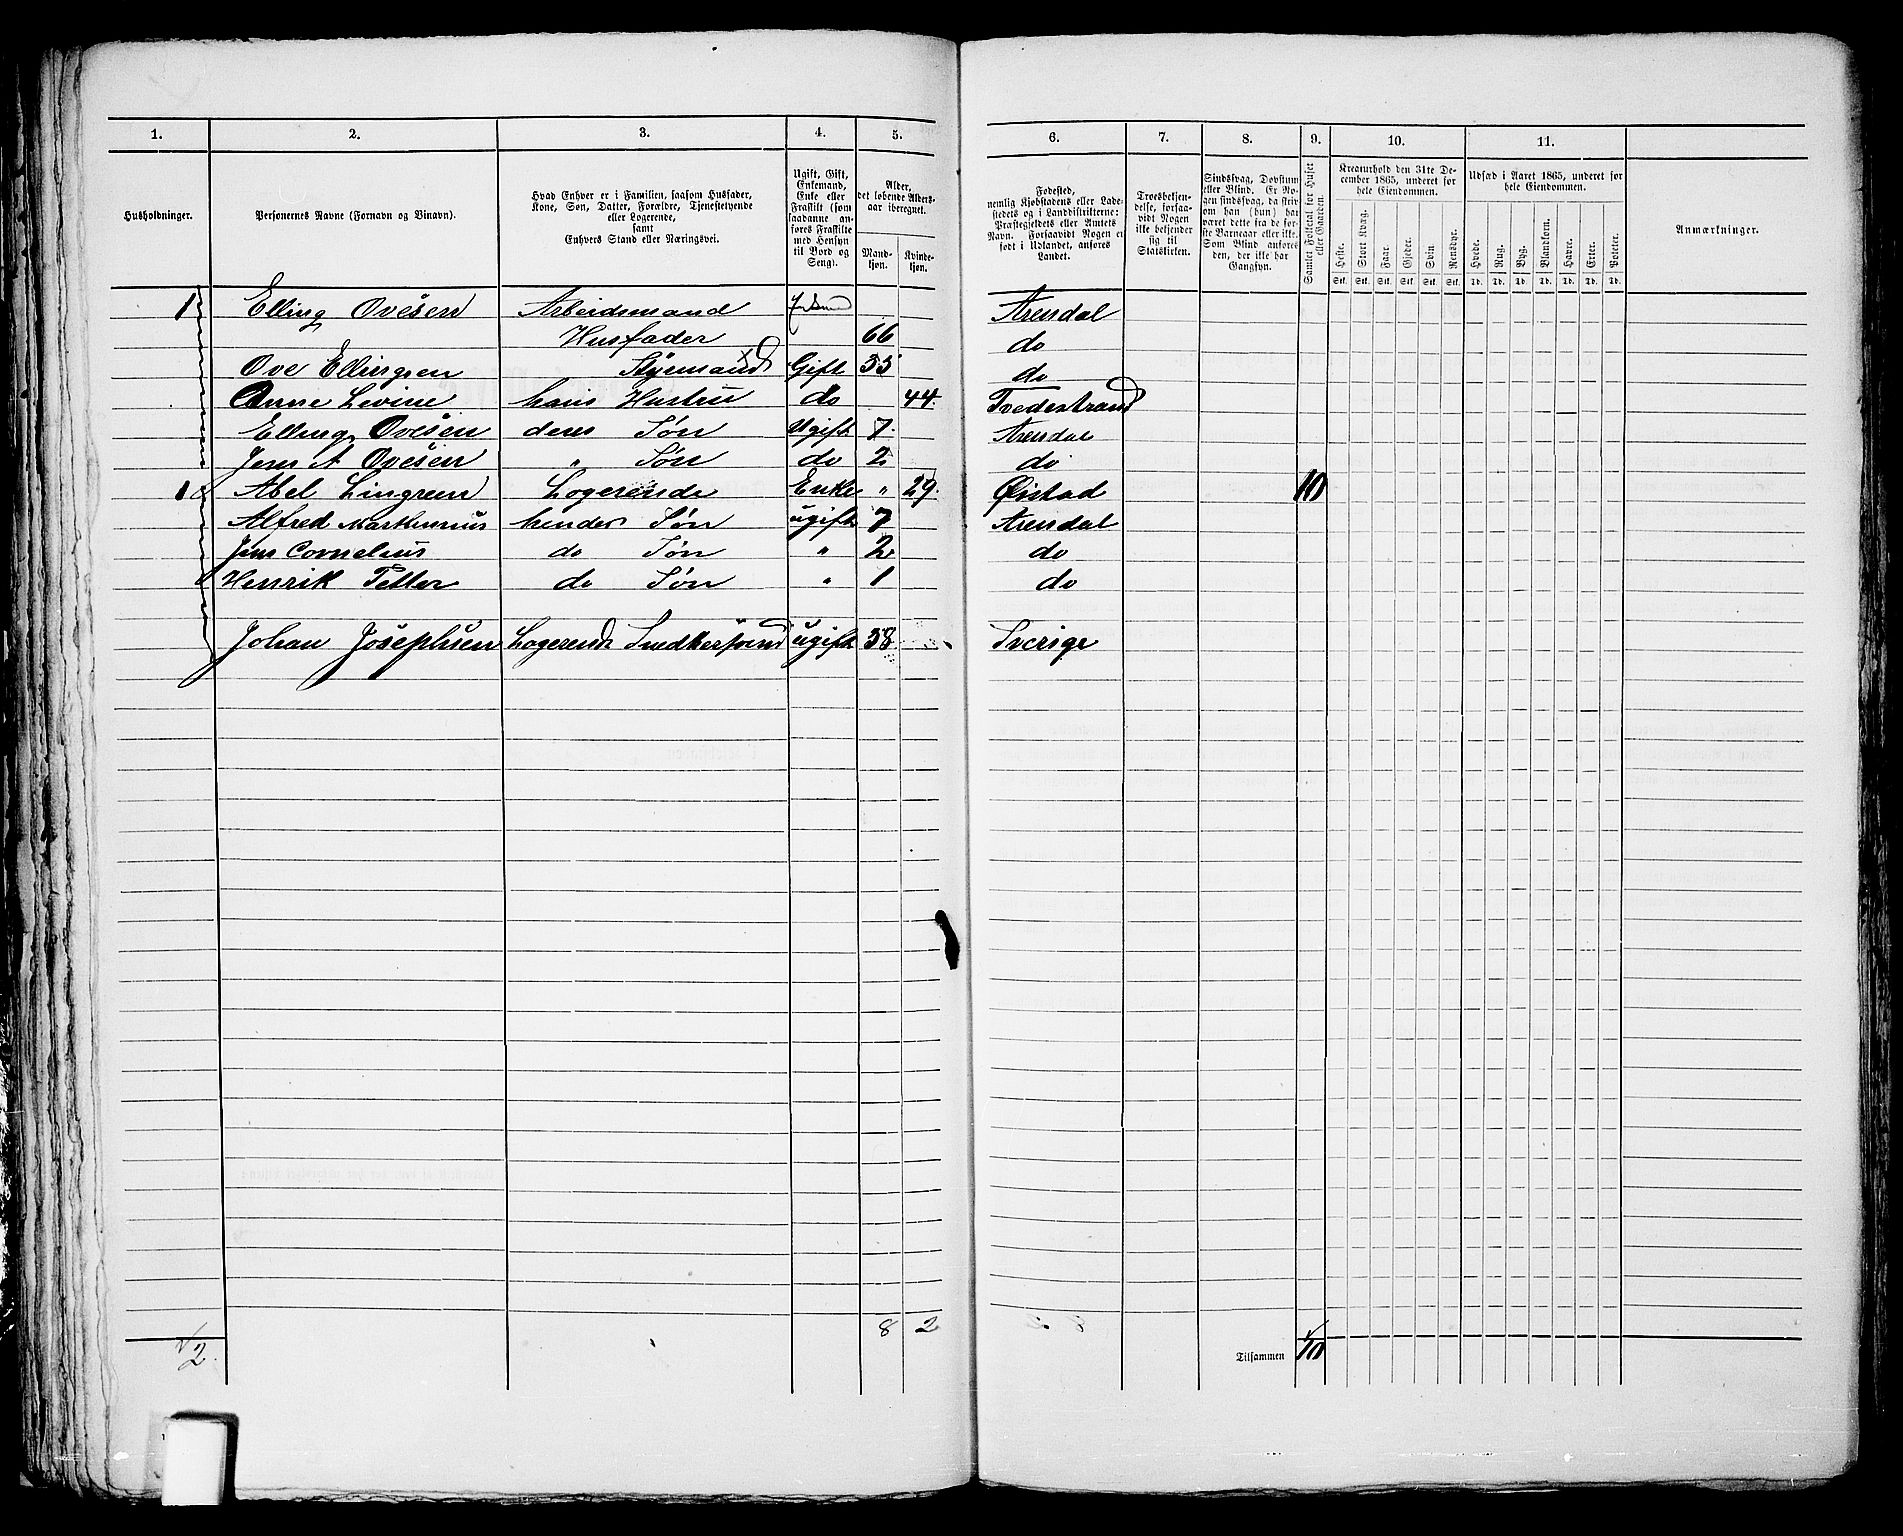 1. 2. 3. 4. 5. 6. 7. 8. 9. 10. 11.
Husholdninger.
Personernes Navne (Fornavn og Vinavn).
Hvad Enhver er i Familien, saasom Husfader,
Kone, Søn, Datter, Forældre, Tjenestetyende
eller Logerende,
samt
Enhvers Stand eller Næringsvei.
Ugift, Gift,
Enkemand,
Enke eller
Fraskilt (som
saadanne an-
føres Fraskilte
med Hensyn
til Bord og
Seng).
Alder,
det løbende Alders-
aar iberegnet.
Mand-
kjøn.
Kvinde-
kjøn.
Fødested,
nemlig Kjøbstadens eller Lade-
stedets og i Landdistrikterne:
Præstegjeldets eller Amtets
Navn. Forsaavidt Nogen er
født i Udlandet, anføres
Landet.
Troesbekjen-
delse, forsaa-
vidt Nogen
ikke bekjender
sig til
Statskirken.
Sindssvag, Døvstum
eller Blind. Er No-
gen sindssvag, da skriv
om han (hun) har
været dette fra de før-
ste Barneaar eller ikke.
Som Blind anføres
den, der ikke har
Gangsyn.
Samlet Folketal for Huset
eller Gaarden.
Kreaturhold den 31te De-
cember 1865, underet for
hele Eiendommen.
Heste. Stort Kvæg. Faar. Gjeder. Svin Rensdyr.
Stk. Stk. Stk. Stk. Stk. Stk.
Udsæd i Aaret 1865, underet for
hele Eiendommen.
Hvede. Rug. Byg. Blandkorn. Havre. Erter. Poteter.
Td. Td. Td. Td. Td. Td. Td.
Anmærkninger.
1 Elling Ovesen Arbeidsmand Arendal
Husfader 66 do
Ove Ellingsen Styrmand Gift 35 do
Anne Levine hans Hustru do 44. Tvedestrand
Elling Ovesen deres Søn Ugift 7. Arendal
Jens A Ovesen " Søn do 2. do
1 Abel Lingreen Logerende Enke " 29. Øiestad 10
Alfred Marthinius hendes Søn ugift 7 Arendal
Jens Cornelius do Søn " 2 do
Henrik Petter do Søn " 1 do
Johan Josephsen Logerende Snedkersvend ugift 38 Sverige
8 2
2.
Tilsammen 10